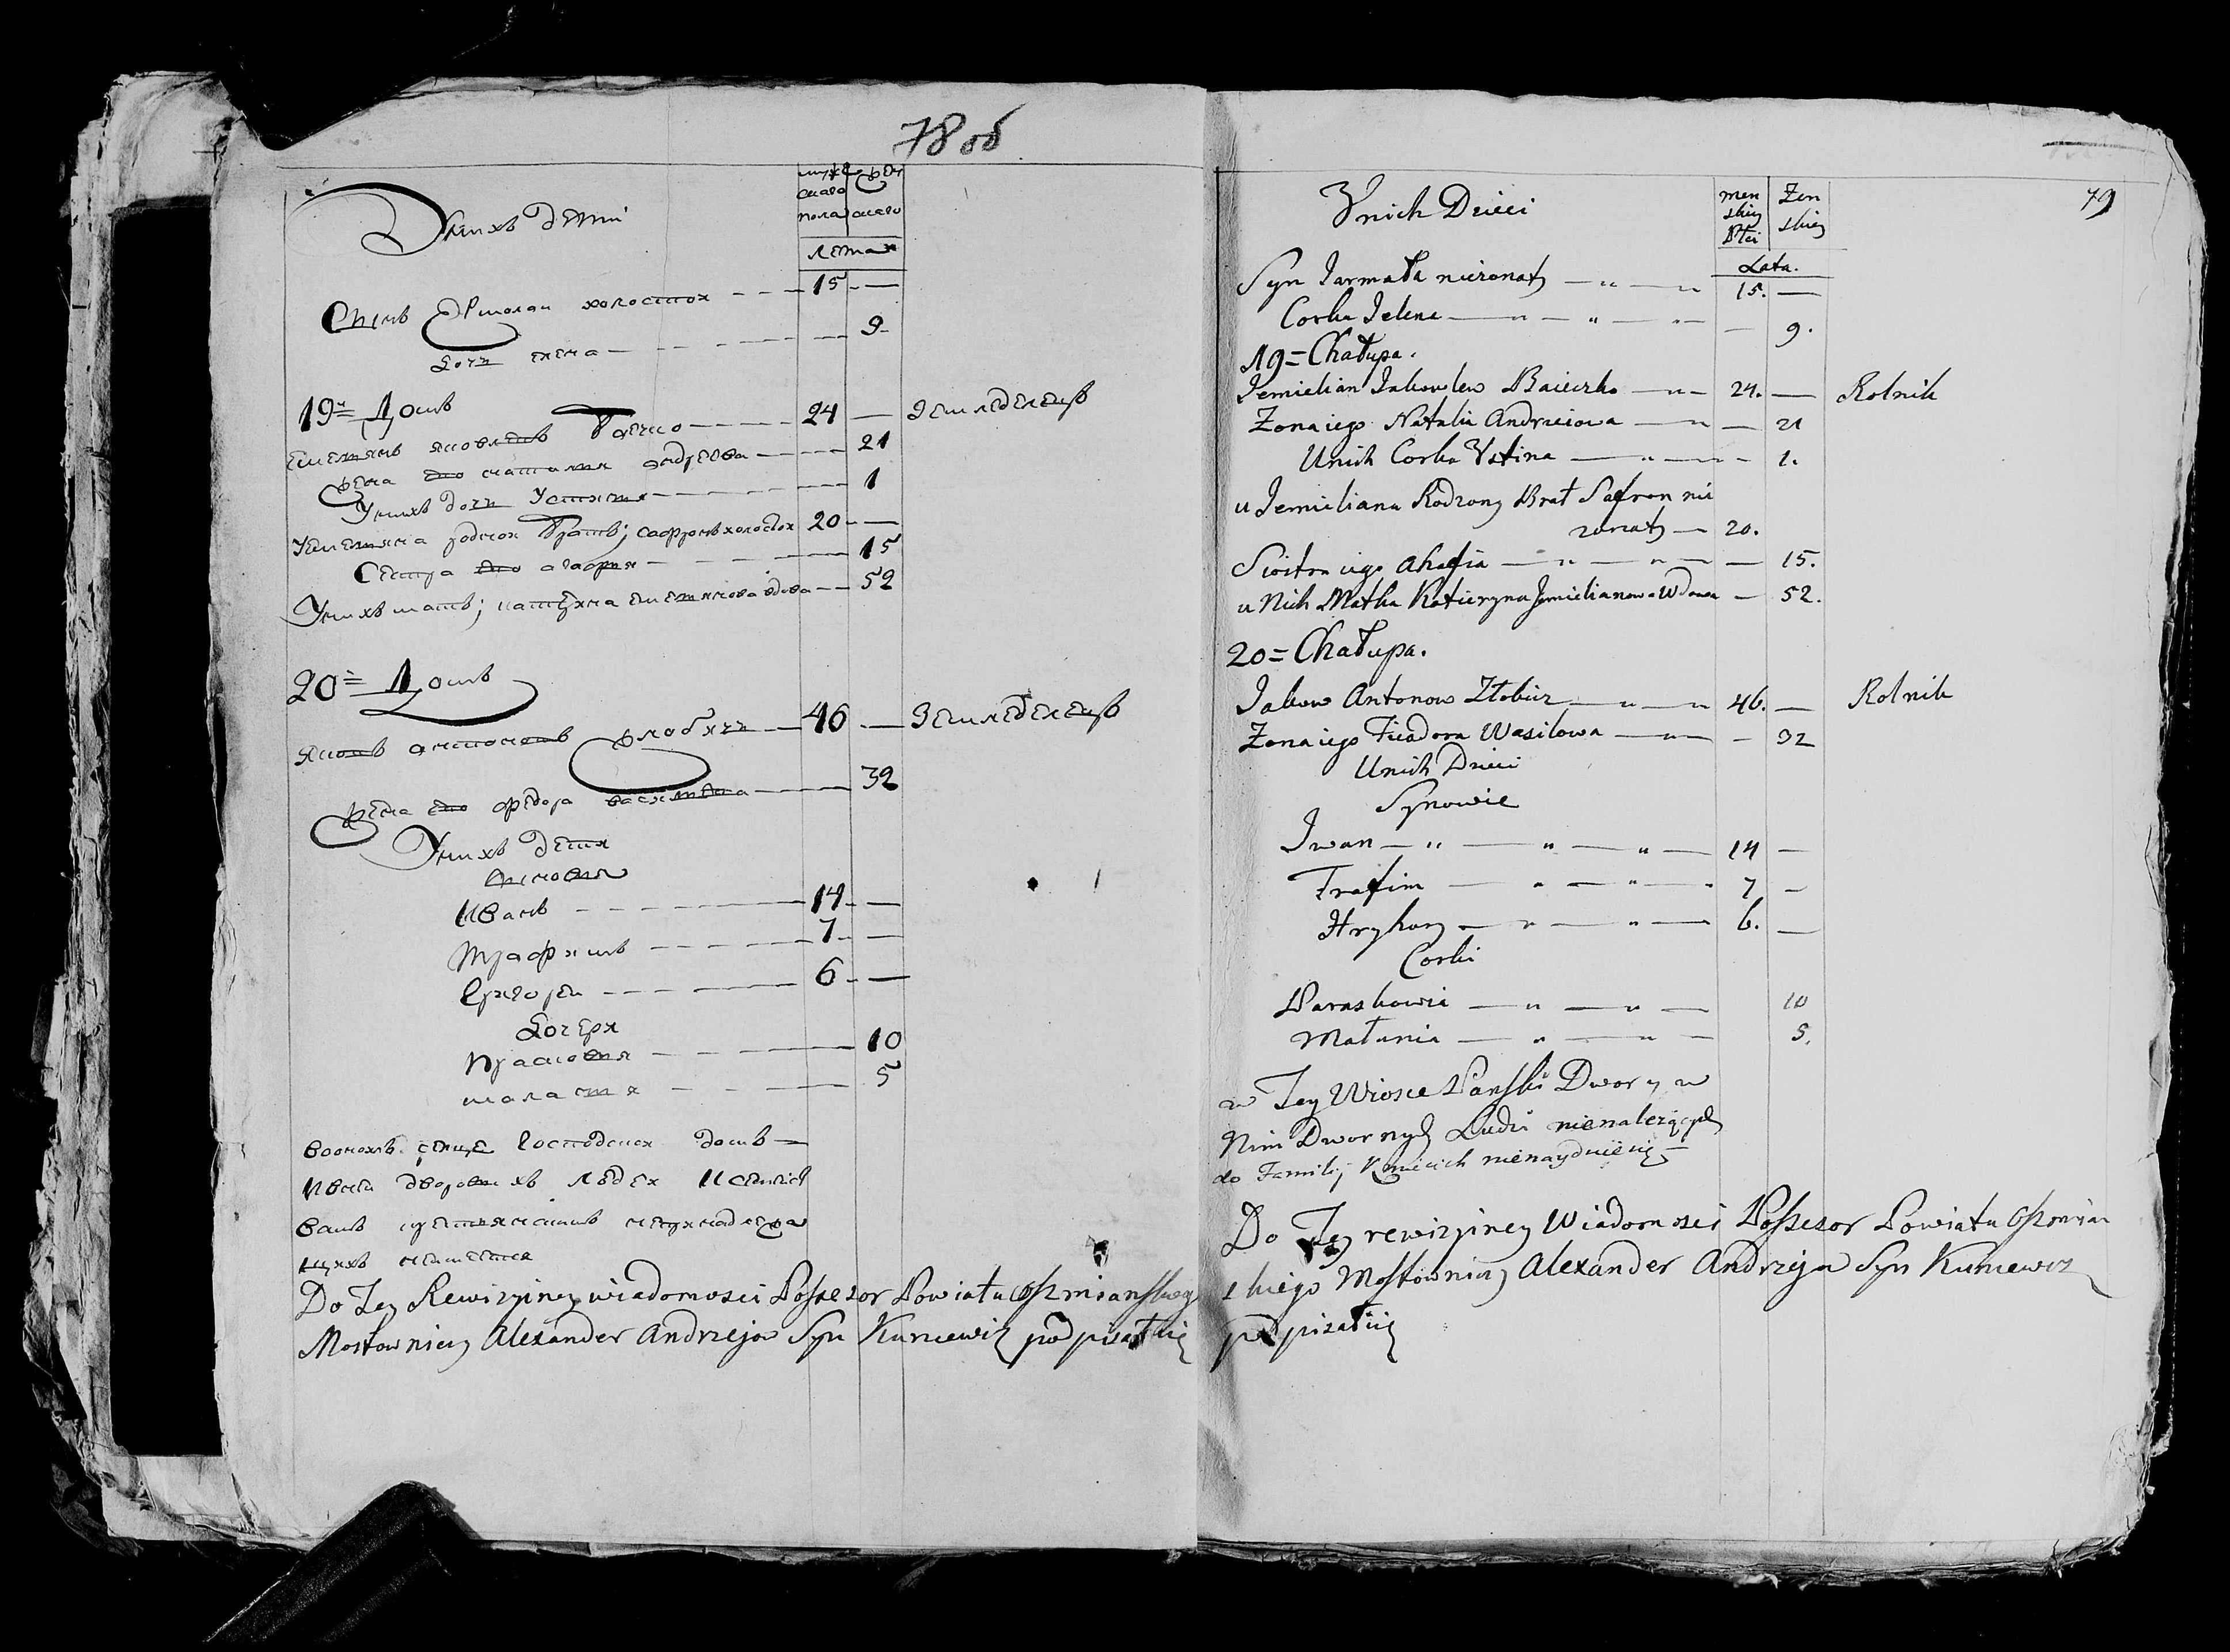 78 об
У нихъ дети
муже
скаго
пола
жен
скаго
летах
Сынъ Ермолаи холостои 15 —
дочь елена 9
19й Домъ
Емелянъ яковлевъ баечко 24 — Земледелецъ
жена его наталия андреева 21
У нихъ дочь Устиния 1
У Емеляна роднои братъ; сафронъ холостои 20 —
Сестра его агафия 15
У нихъ мать; катерина емелянова вдова 52
20й Домъ
Яковъ антоновъ жлобичь 46 — Земледелецъ
жена его федора василева 32
У нихъ дети
Сыновя
Иванъ 14 —
Трафимъ 7 —
Григореи 6 —
Дочери
Прасковя 10
малания 5
Воонохъ селце господскои домъ
И внем дворовыхъ людеи
крестянамъ непринадлежа
щихъ неимеется
Do Tey Rewizyiney wiadomosci Possesor Powiatu Oszmianskieg
Mostowniczy Alexander Andrzeja Syn Kuncewicz podpisał się
79
U nich Dzieci
men
skiey
Płci
Zen
skiey
Lata.
Syn Jarmała niezonaty 15. —
Corka Jelena — 9.
19 = Chałupa.
Jemielian Jakowlew Baieczko 24. — Rolnik
Zona iego Natalia Andrzeiowa — 21
U nich Corka Ustina — 1.
u Jemieliana Rodzony Brat Safron nie
zonaty 20.
Siostra iego Ahafia — 15.
u Nich Matka Katieryna Jemielianowa Wdowa — 52.
20 = Chałupa.
Jakow Antonow Złobicz 46. — Rolnik
Zona iego Fiadora Wasilowa — 32
U nich Dzieci
Synowie
Iwan 14 —
Trafim 7 —
Hryhory 6. —
Corki
Paraskowia 10
Małania 5.
w Tey Wiosce Panski Dwor y w
Nim Dwornych Ludzi nienalezących
do Familij Kmiecich nienayduie się
Do Tey rewizyiney Wiadomosci Possesor Powiatu Oszmian
skiego Mostowniczy Alexander Andrzeja Syn Kuncewicz
podpisał się